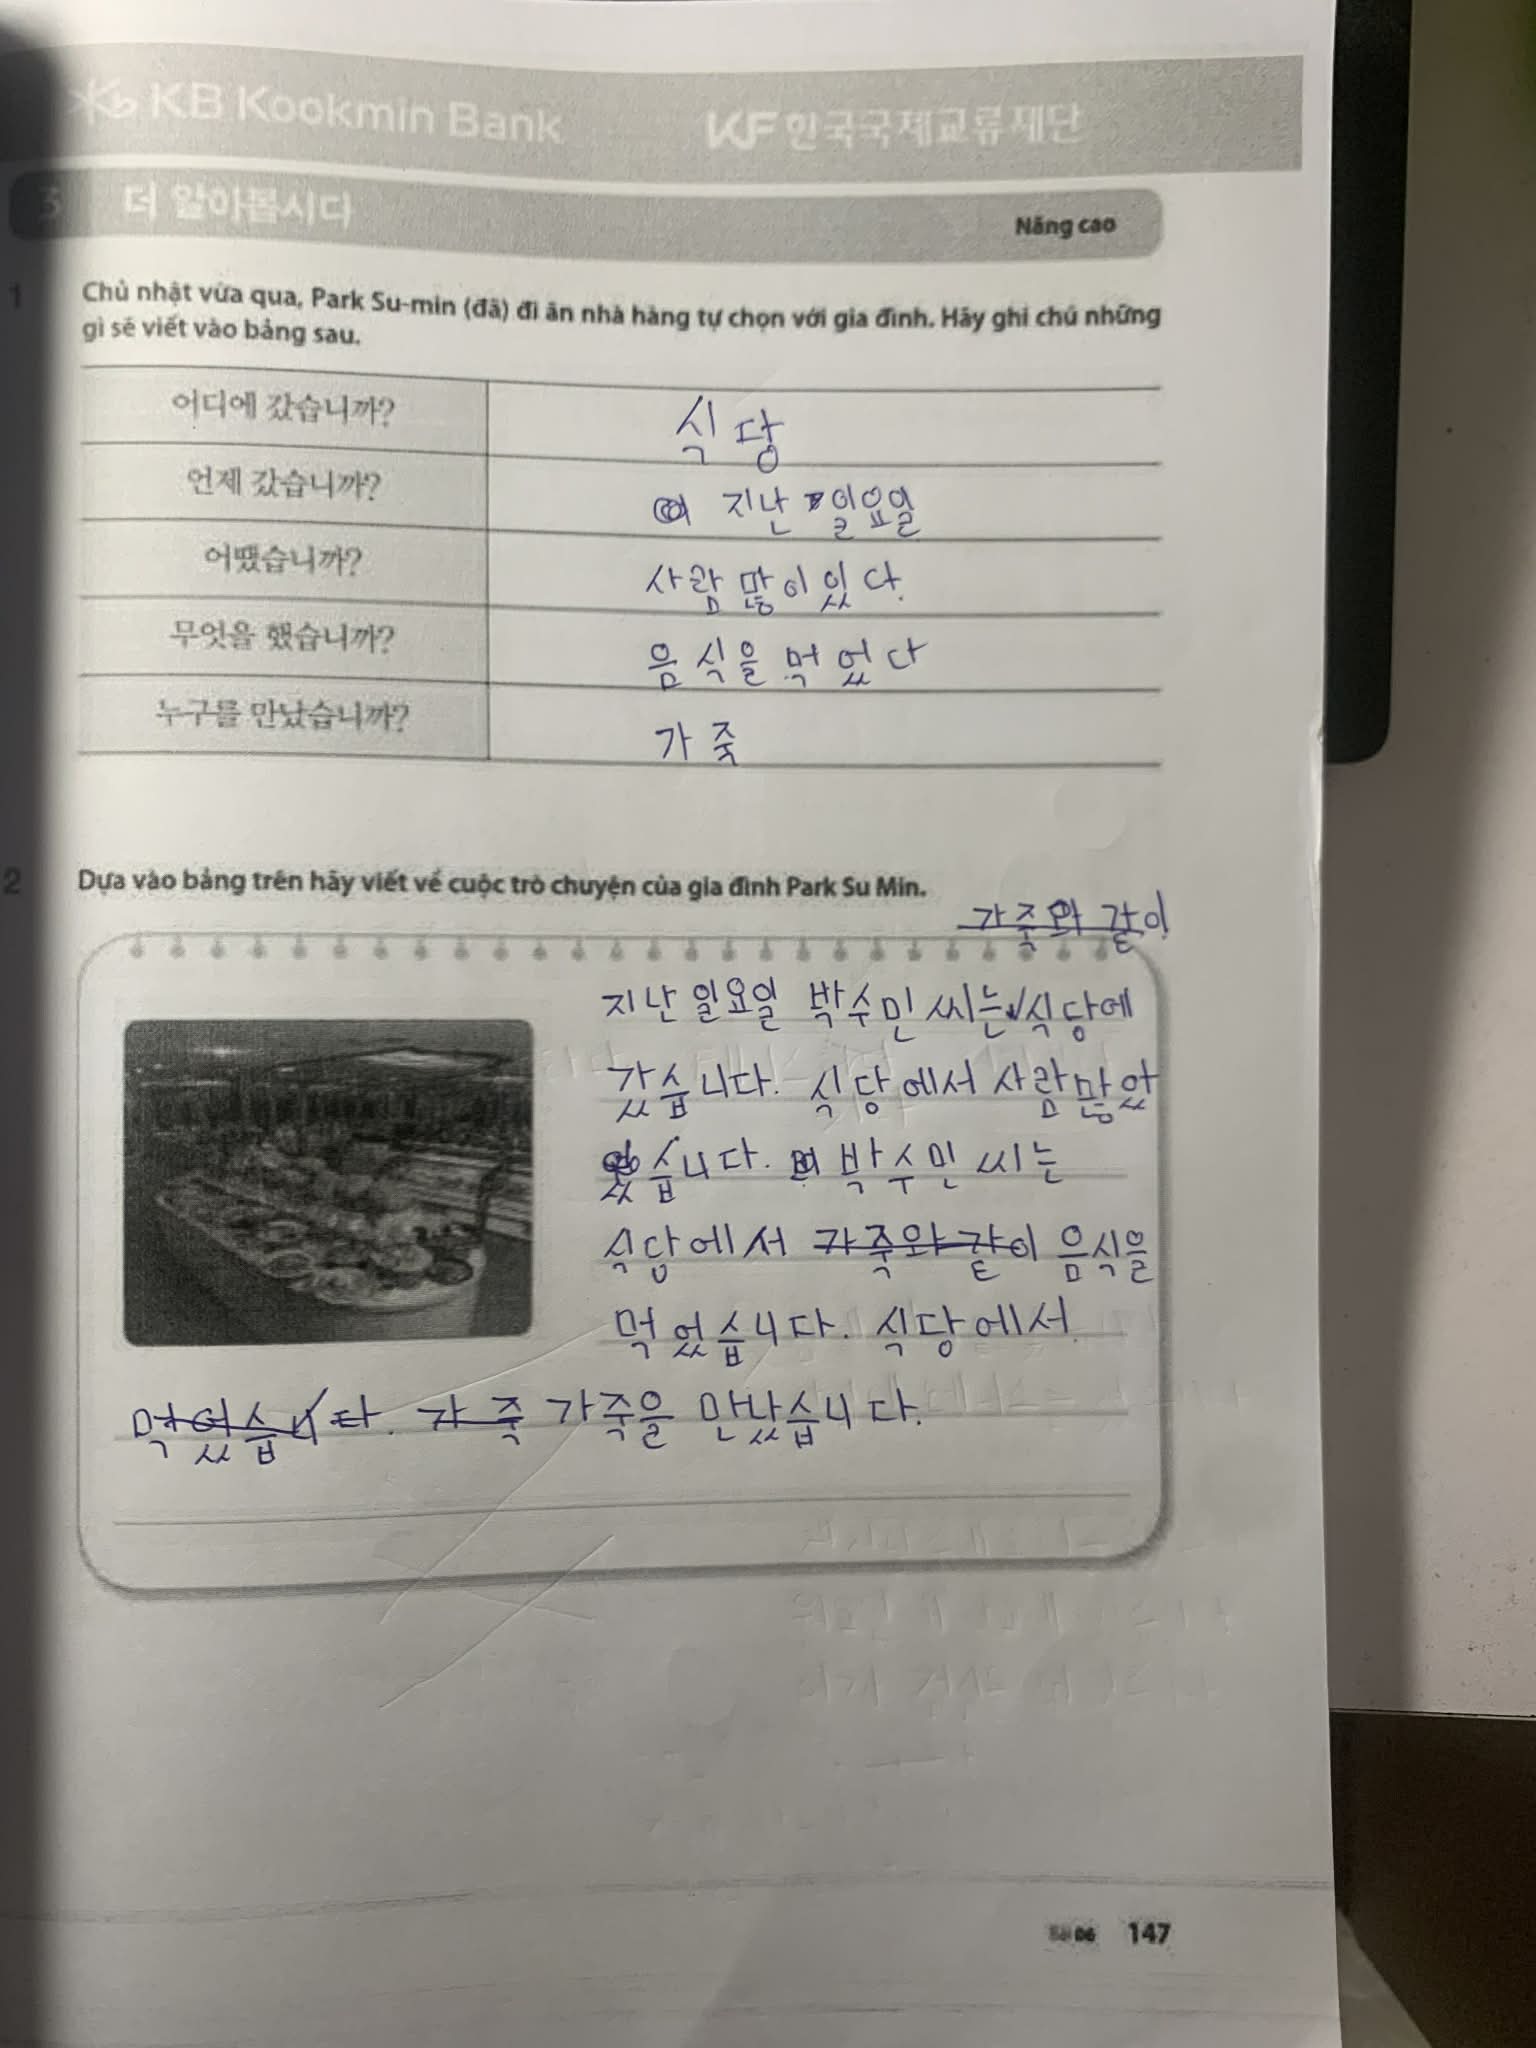 KB Kookmin Bank
KF 한국국제교류재단
3 더 알아봅시다
Nâng cao
1 Chủ nhật vừa qua, Park Su-min (đã) đi ăn nhà hàng tự chọn với gia đình. Hãy ghi chú những
gì sẽ viết vào bảng sau.
어디에 갔습니까? 식당
언제 갔습니까? 지난 일요일
어땠습니까? 사람 많이 있다.
무엇을 했습니까? 음식을 먹었다
누구를 만났습니까? 가족
2 Dựa vào bảng trên hãy viết về cuộc trò chuyện của gia đình Park Su Min.
가족와 같이
지난 일요일 박수민 씨는 식당에
갔습니다. 식당에서 사람 많았
습니다. 박수민 씨는
식당에서 가족와 같이 음식을
먹었습니다. 식당에서
먹었습니다. 가족 가족을 만났습니다.
Bài 06 147